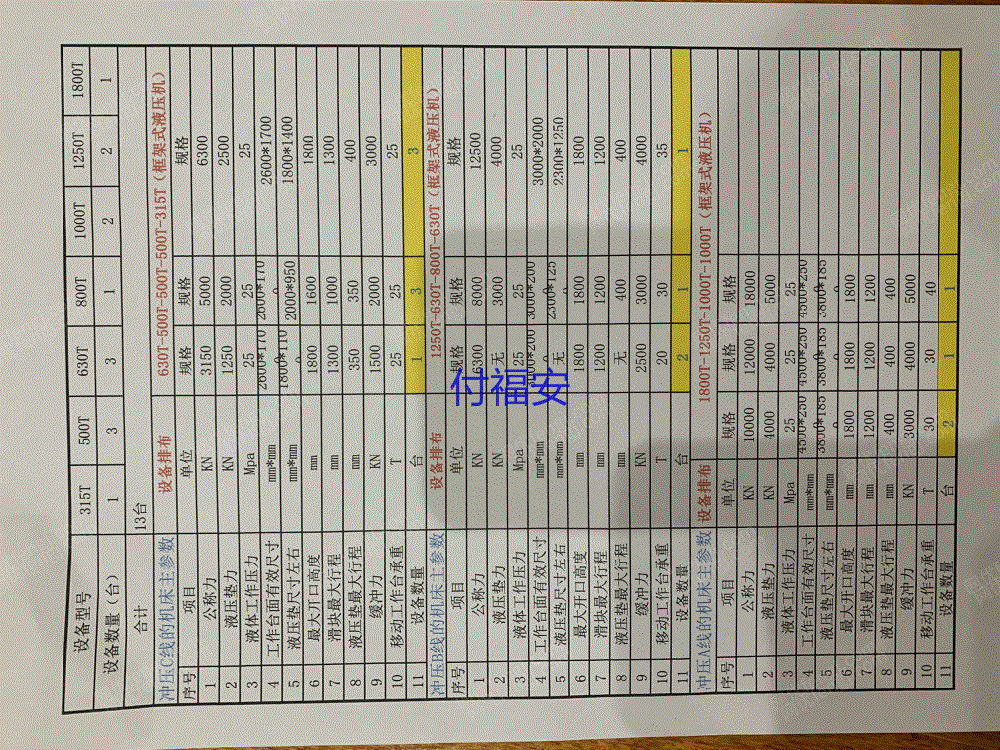 设备型号 315T 500T 630T 800T 1000T 1250T 1800T
设备数量（台） 1 3 3 1 2 2 1
合计 13台
冲压C线的机床主参数 设备排布 630T-500T-500T-500T-315T（框架式液压机）
序号 项目 单位 规格 规格 规格
1 公称力 KN 3150 5000 6300
2 液压垫力 KN 1250 2000 2500
3 液体工作压力 Mpa 25 25 25
4 工作台面有效尺寸 mm*mm 2600*170 2600*170 2600*1700
5 液压垫尺寸左右 mm*mm 1800*110 2000*950 1800*1400
6 最大开口高度 mm 1800 1600 1800
7 滑块最大行程 mm 1300 1000 1300
8 液压垫最大行程 mm 350 350 400
9 缓冲力 KN 1500 2000 3000
10 移动工作台承重 T 25 25 25
11 设备数量 台 1 3 3
冲压B线的机床主参数 设备排布 1250T-630T-800T-630T（框架式液压机）
序号 项目 单位 规格 规格 规格
1 公称力 KN 6300 8000 12500
2 液压垫力 KN 无 3000 4000
3 液体工作压力 Mpa 25 25 25
4 工作台面有效尺寸 mm*mm 3000*200 3000*200 3000*2000
5 液压垫尺寸左右 mm*mm 无 2300*125 2300*1250
6 最大开口高度 mm 1800 1800 1800
7 滑块最大行程 mm 1200 1200 1200
8 液压垫最大行程 mm 无 400 400
9 缓冲力 KN 2500 3000 4000
10 移动工作台承重 T 20 30 35
11 设备数量 台 2 1 1
冲压A线的机床主参数 设备排布 1800T-1250T-1000T-1000T（框架式液压机）
序号 项目 单位 规格 规格 规格
1 公称力 KN 10000 12000 18000
2 液压垫力 KN 4000 4000 5000
3 液体工作压力 Mpa 25 25 25
4 工作台面有效尺寸 mm*mm 4500*250 4500*250 4500*250
5 液压垫尺寸左右 mm*mm 3800*185 3800*185 3800*185
6 最大开口高度 mm 1800 1800 1800
7 滑块最大行程 mm 1200 1200 1200
8 液压垫最大行程 mm 400 400 400
9 缓冲力 KN 3000 4000 5000
10 移动工作台承重 T 30 30 40
11 设备数量 台 2 1 1
付福安